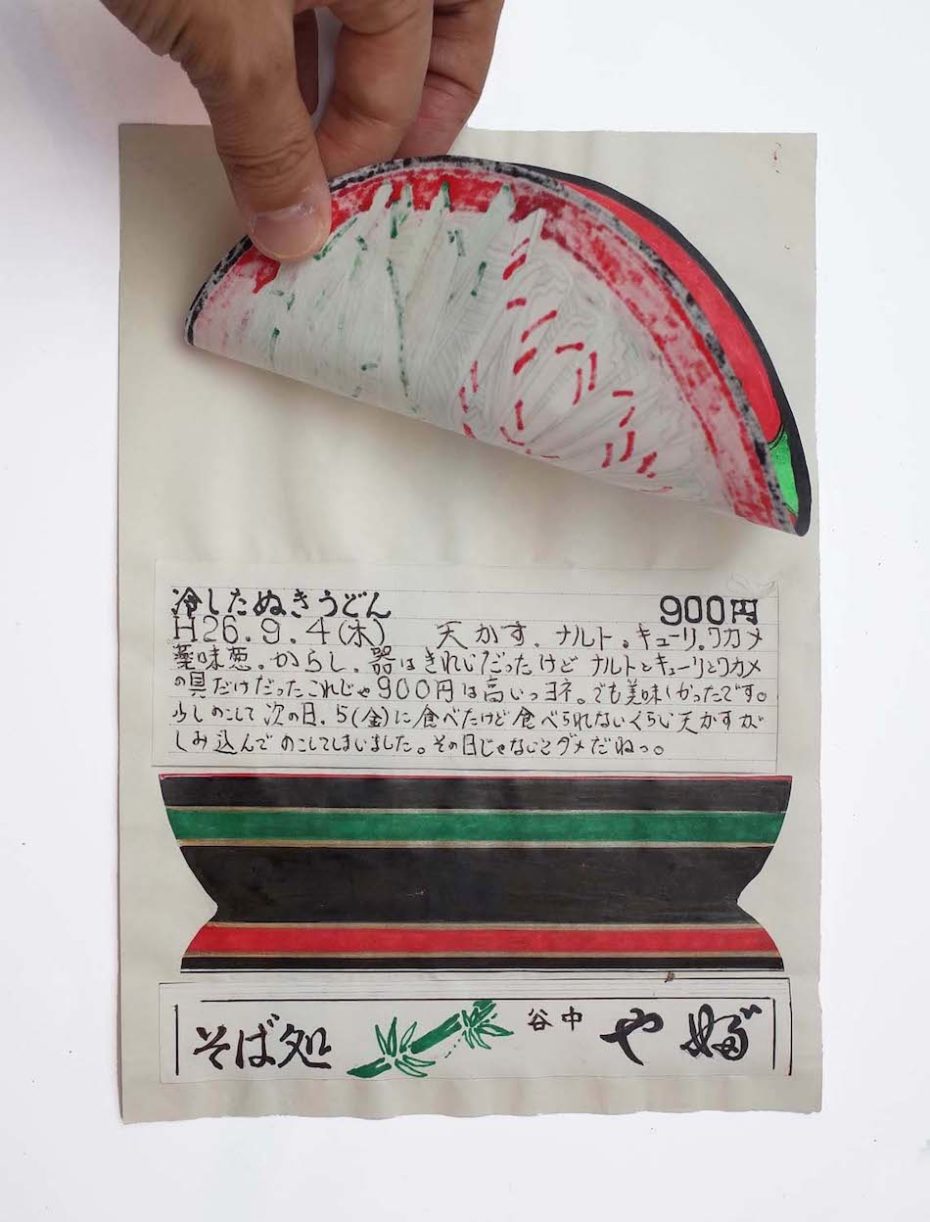 冷したぬきうどん 900円
H26.9.4(木) 天かす.ナルト。キューリ。ワカメ
薬味葱。からし、器はきれいだったけど ナルトとキューリとワカメ
の具だけだったこれじゃ900円は高いっヨネ。でも美味しかったです。
少しのこして次の日.5(金)に食べたけど食べられないくらい天かすが
しみ込んでのこしてしまいました。その日じゃないとダメだねっ。
そば処 谷中 やぶ